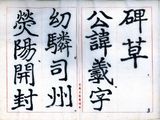 碑草
公諱羲字
幼驎司州
熒陽開封